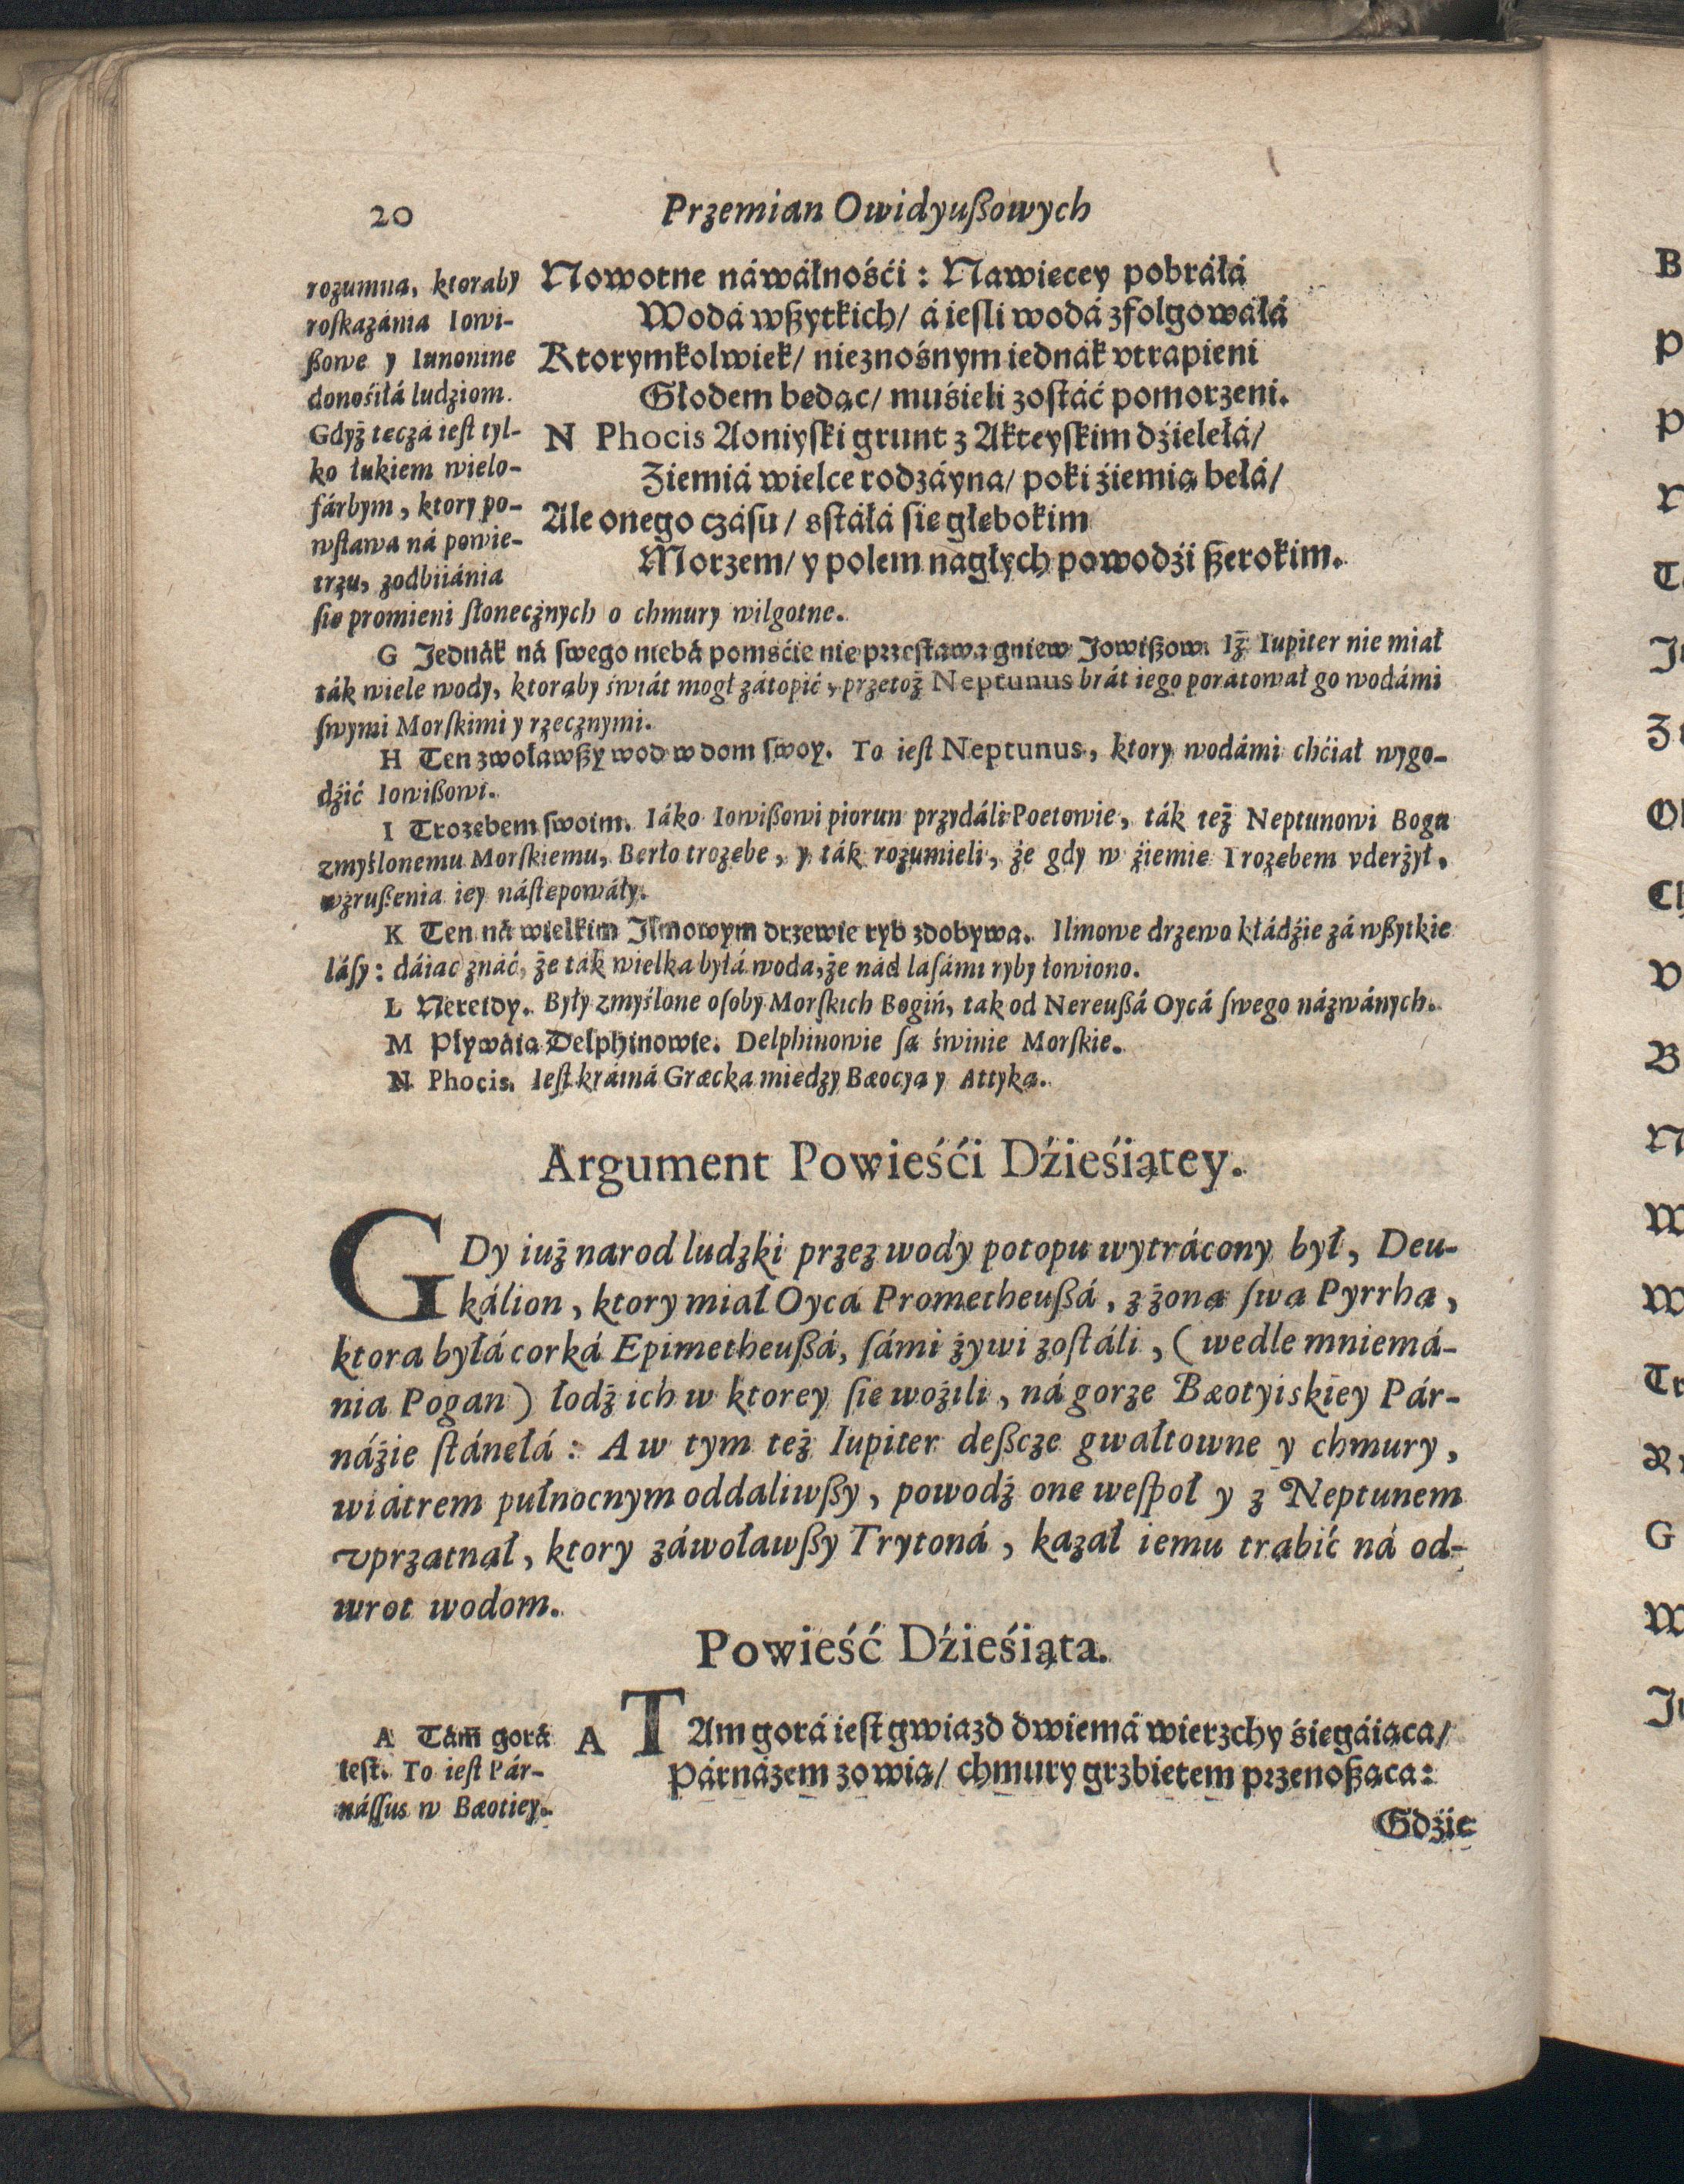 20 Przemian Owidyußowych
rozumna, ktoraby
roſkazánia Iowi-
ßowe y Iunonine
donośiłá ludziom.
Gdyż teczá ieſt tyl-
ko łukiem wielo-
fárbym, ktory po-
wſtawa ná powie-
trzu, zodbiiánia
ſie promieni ſłonecznych o chmury wilgotne.
Nowotne náwáłnośći: Nawiecey pobráłá
Wodá wßytkich/ á ieſli wodá zfolgowáłá
Ktorymkolwiek/ nieznośnym iednák vtrapieni
Głodem bedąc/ muśieli zoſtáć pomorzeni.
N Phocis Aoniyſki grunt z Akteyſkim dźielełá/
Ziemiá wielce rodzáyna/ poki źiemią bełá/
Ale onego czásu/ sſtáłá ſie głebokim
Morzem/ y polem nagłych powodźi ßerokim.
G Jednák ná ſwego niebá pomśćie nie przeſtawa gniew Jowißow. Iż Iupiter nie miał
ták wiele wody, ktoraby świát mogł zátopić, przetoż Neptunus brát iego poratował go wodámi
ſwymi Morſkimi y rzecznymi.
H Ten zwoławßy wod w dom ſwoy. To ieſt Neptunus, ktory wodámi chćiał wygo-
dźić Iowißowi.
I Trozebem ſwoim. Iáko Iowißowi piorun przydáli Poetowie, ták też Neptunowi Bogu
zmyślonemu Morſkiemu, Berło trozebe, y ták rozumieli, że gdy w źiemie Trozebem vderżył,
wzrußenia iey náſtepowáły.
K Ten ná wielkim Jlmowym drzewie ryb zdobywa. Ilmowe drzewo kłádźie zá wßytkie
láſy: dáiac znáć, że ták wielka byłá woda, że nád laſámi ryby łowiono.
L Nereidy. Były zmyślone oſoby Morſkich Bogiń, tak od Nereußá Oycá ſwego názwánych.
M Pływáia Delphinowie. Delphinowie ſą świnie Morſkie.
N Phocis. Ieſt kráiná Græcka miedzy Bæocya y Attyka.
Argument Powieśći Dźieśiątey.
GDy iuż narod ludzki przez wody potopu wytrácony był, Deu-
kálion, ktory miał Oycá Prometheußá, z żoną ſwa Pyrrha,
ktora byłá corká Epimetheußá, ſámi żywi zoſtáli, (wedle mniemá-
nia Pogan) łodż ich w ktorey ſie wożili, ná gorze Bæotyiskiey Pár-
náżie ſtánełá: A w tym też Iupiter deßcze gwałtowne y chmury,
wiátrem pułnocnym oddaliwßy, powodż one weſpoł y z Neptunem
vprzatnał, ktory záwoławßy Trytoná, kazał iemu trąbić ná od-
wrot wodom.
Powieść Dźieśiąta.
A Tám gorá
ieſt. To ieſt Pár-
náſſus w Bæotiey.
A TAm gorá ieſt gwiazd dwiemá wierzchy śiegáiąca/
Párnázem zowią/ chmury grzbietem przenoßąca:
Gdźie